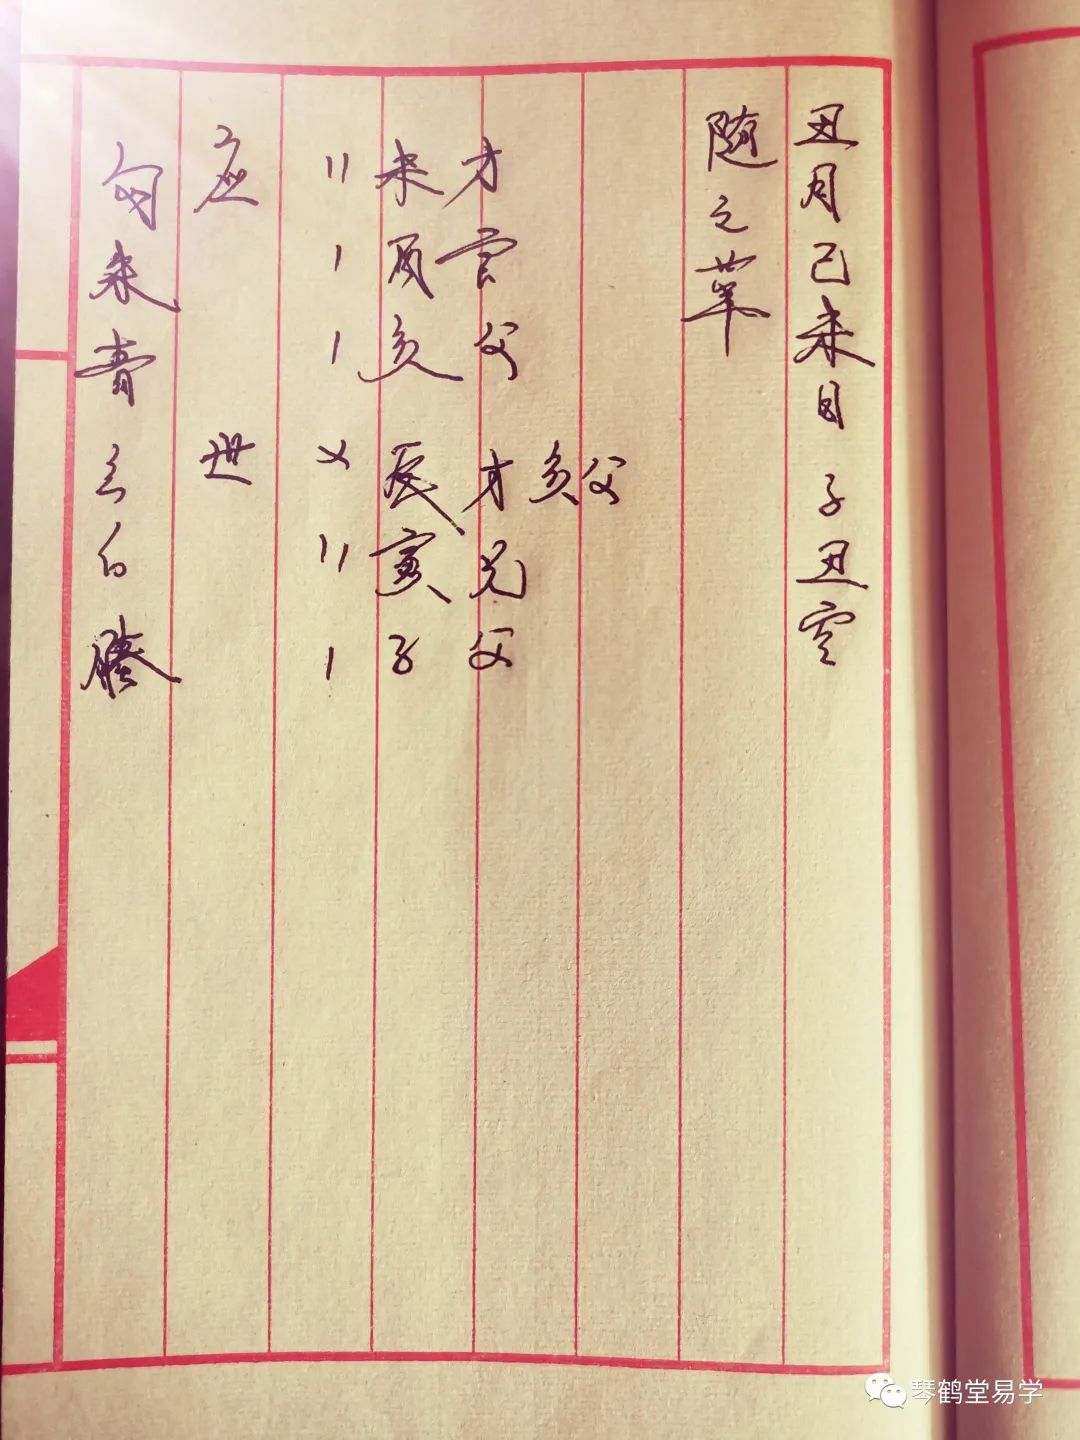 丑月己未日 子丑空
随之革
勾 应 〃 未 才
朱 ﹨ 酉 官
青 ﹨ 亥 父
玄 世 乂 辰 才 亥 父
白 〃 寅 兄
腾 ﹨ 子 父
琴鹤堂易学